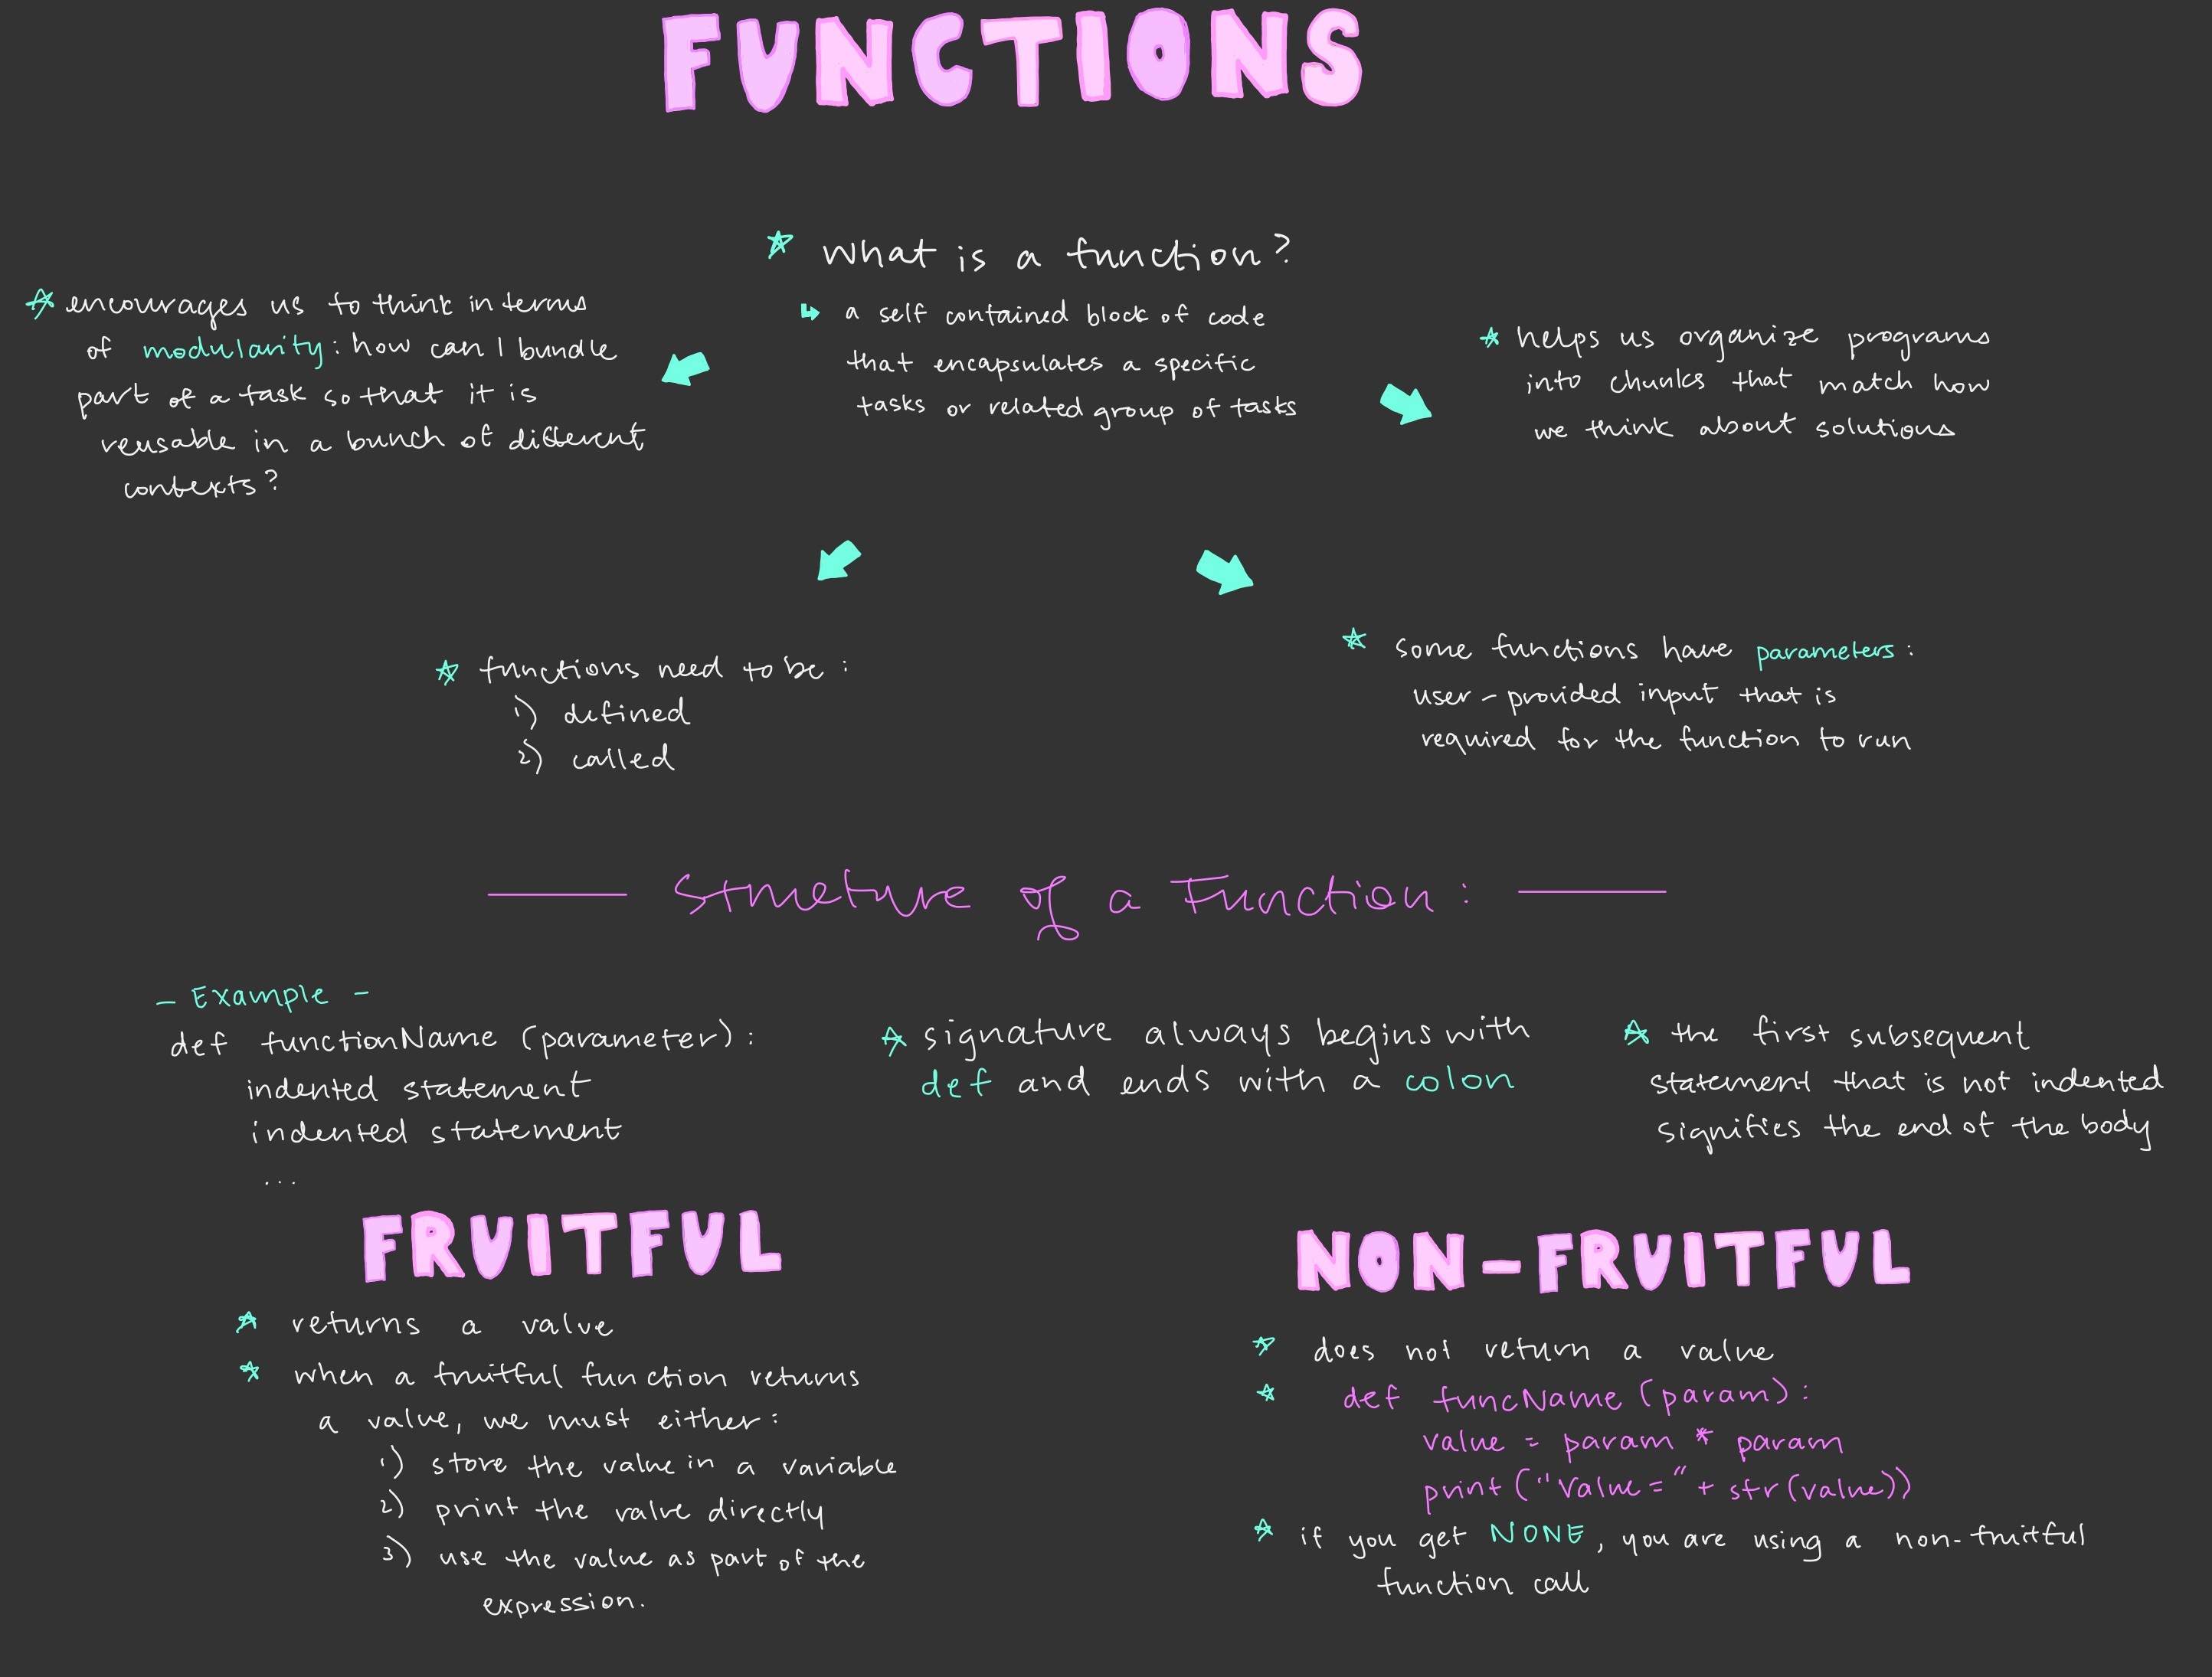 FUNCTIONS
What is a function?
↳ a self contained block of code
that encapsulates a specific
tasks or related group of tasks
encourages us to think in terms
of modularity: how can I bundle
part of a task so that it is
reusable in a bunch of different
contexts?
helps us organize programs
into chunks that match how
we think about solutions
functions need to be:
1) defined
2) called
some functions have parameters:
user-provided input that is
required for the function to run
Structure of a Function:
- Example -
def functionName (parameter):
indented statement
indented statement
...
signature always begins with
def and ends with a colon
the first subsequent
statement that is not indented
signifies the end of the body
FRUITFUL
returns a value
when a fruitful function returns
a value, we must either:
1) store the value in a variable
2) print the value directly
3) use the value as part of the
expression.
NON-FRUITFUL
does not return a value
def funcName (param):
value = param * param
print ("Value=" + str(value))
if you get NONE, you are using a non-fruitful
function call